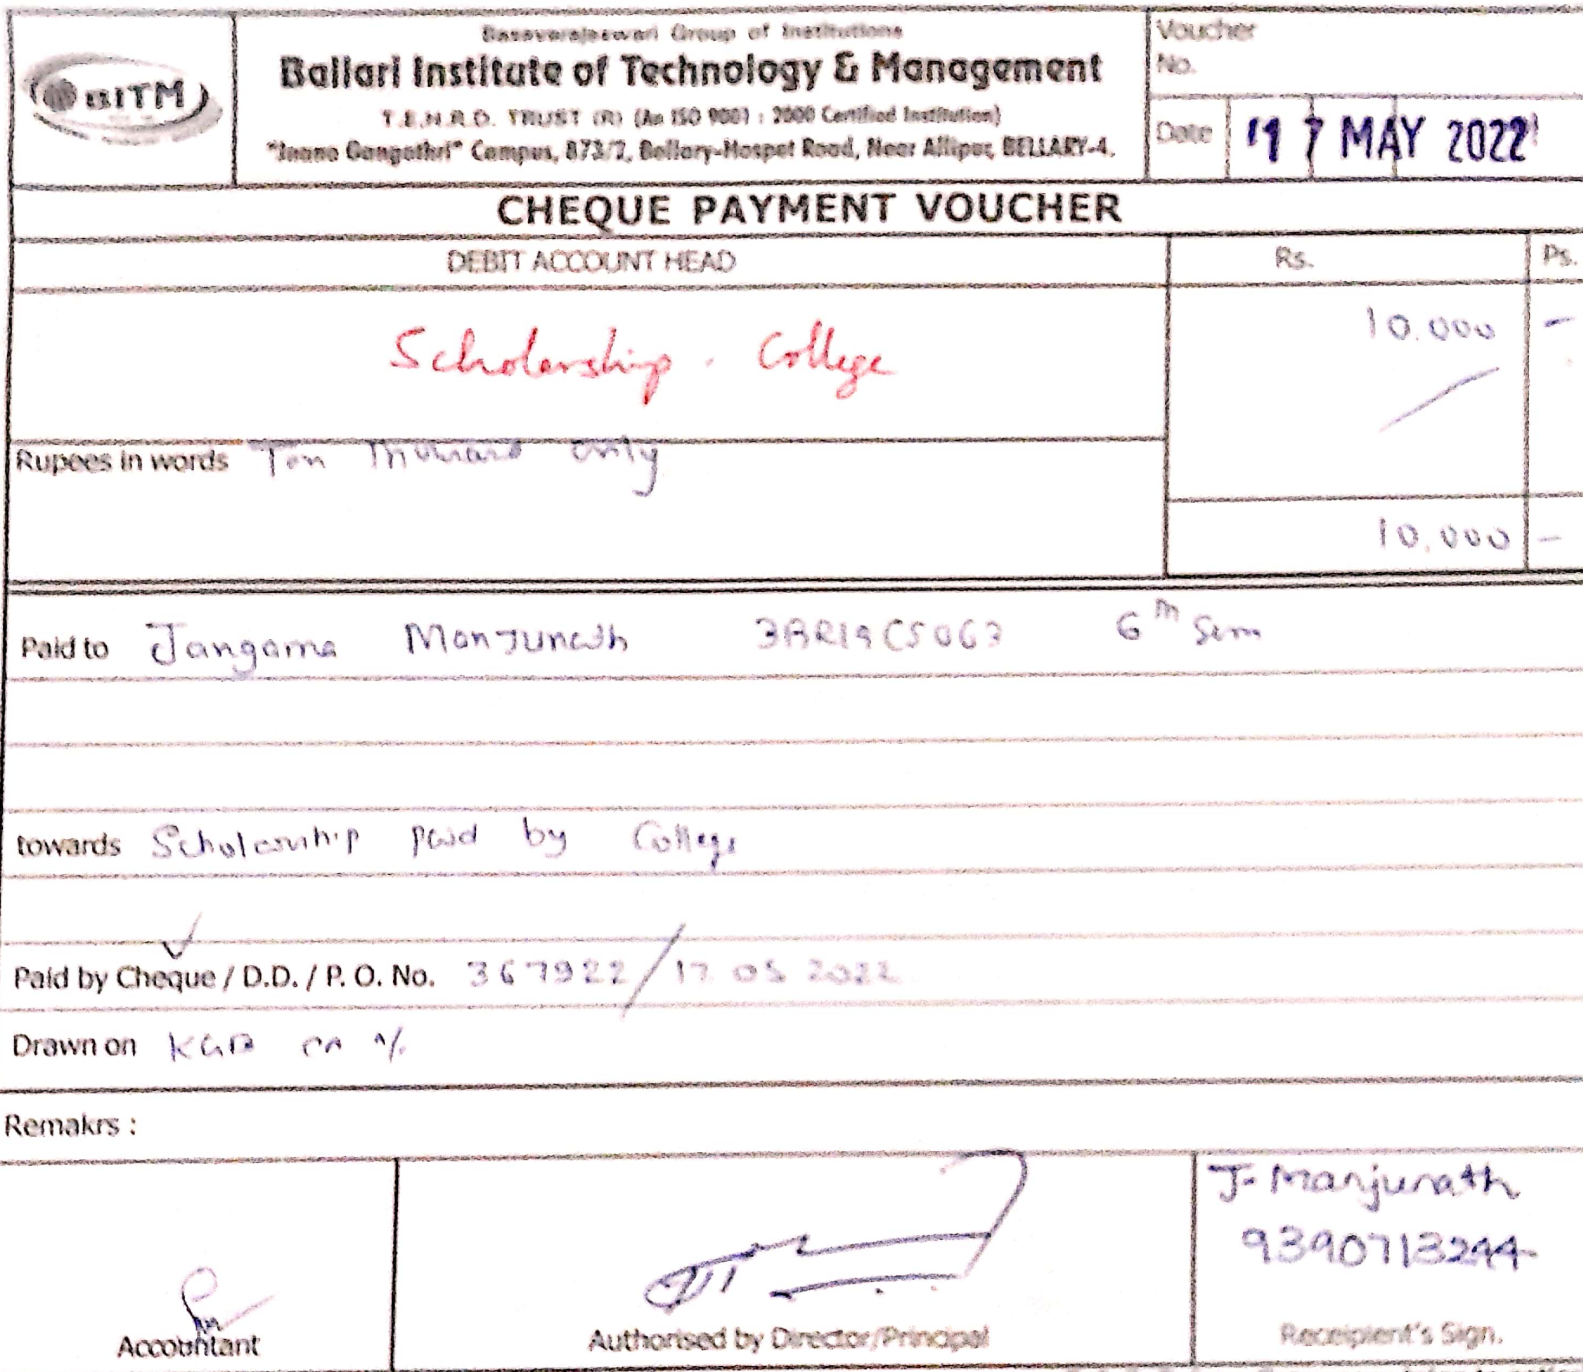 BITM
Basavarajeswari Group of Institutions
Ballari Institute of Technology & Management
T.E.H.R.D. TRUST (R) (An ISO 9001 : 2000 Certified Institution)
"Jnana Gangothri" Campus, 873/2, Bellary-Hospet Road, Near Allipur, BELLARY-4.
Voucher
No.
Date 17 MAY 2022
CHEQUE PAYMENT VOUCHER
DEBIT ACCOUNT HEAD Rs. Ps.
Scholarship . College 10.000 -
Rupees in words Ten Thousand only
10.000 -
Paid to Jangama Manjunath 3BR19CS063 6th Sem
towards Scholarship paid by College
Paid by Cheque / D.D. / P. O. No. 367922/17 05 2022
Drawn on KGB
Remakrs :
J. Manjunath
9390713244
Accountant Authorised by Director/Principal Receipient's Sign.